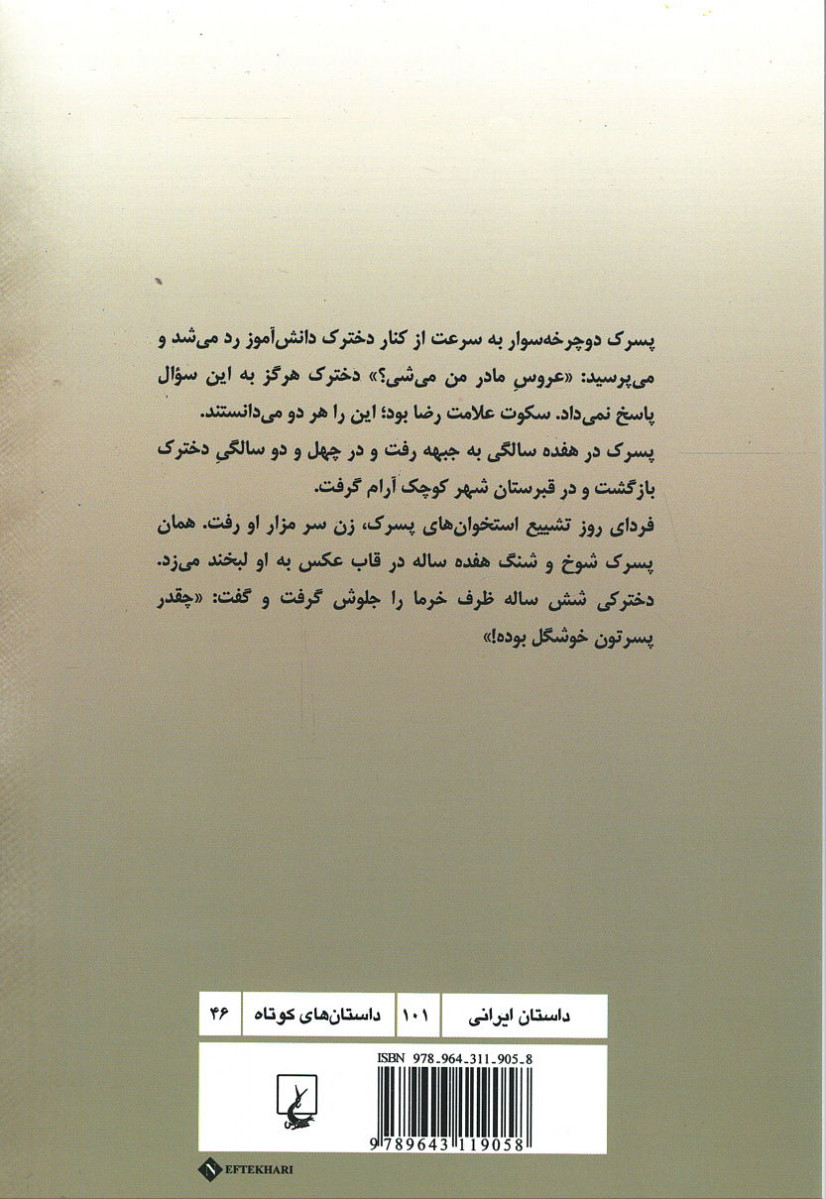 پسرک دوچرخه‌سوار به سرعت از کنار دخترک دانش‌آموز رد می‌شد و
می‌پرسید: «عروسِ مادر من می‌شی؟» دخترک هرگز به این سؤال
پاسخ نمی‌داد. سکوت علامت رضا بود؛ این را هر دو می‌دانستند.
پسرک در هفده سالگی به جبهه رفت و در چهل و دو سالگیِ دخترک
بازگشت و در قبرستان شهر کوچک آرام گرفت.
فردای روز تشییع استخوان‌های پسرک، زن سر مزار او رفت. همان
پسرک شوخ و شنگ هفده ساله در قاب عکس به او لبخند می‌زد.
دخترکی شش ساله ظرف خرما را جلوش گرفت و گفت: «چقدر
پسرتون خوشگل بوده!»
داستان ایرانی ۱۰۱ داستان‌های کوتاه ۴۶
ISBN 978-964-311-905-8
9 789643 119058
N EFTEKHARI